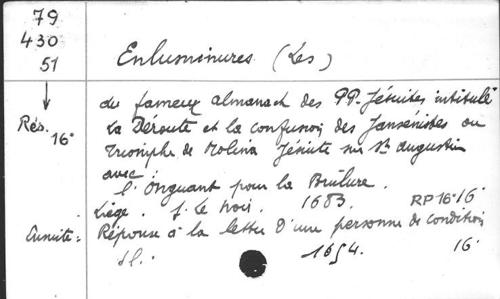 79
430
51
Enluminures (Les)
du fameux almanach des PP. Jésuites intitulé
La Déroute et la confusion des Jansénistes ou
Rés. 16° Triomphe de Molina Jésuite sur St Augustin
avec :
l'Onguant pour la Brûlure.
Liège. J. Le Noir. 1683. RP 16° 16°
Ensuite : Réponse à la lettre d'une personne de condition
sl. 1654. 16°